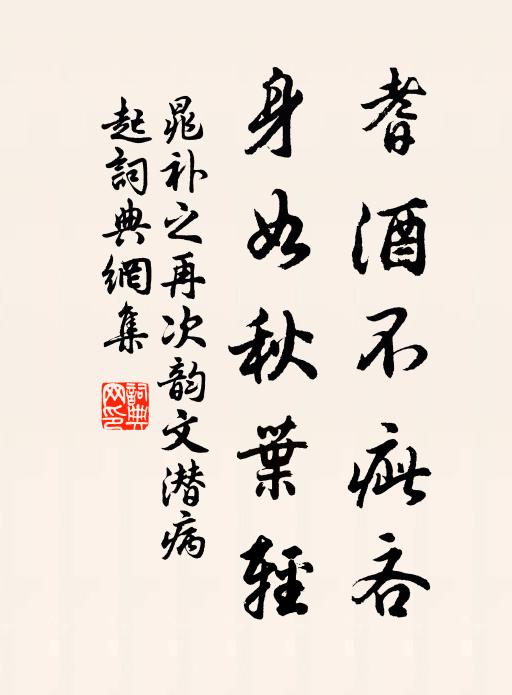 耆酒不疵吝
身如秋葉輕
晁补之再次韵文潜病
起詞典網集
詞典网印